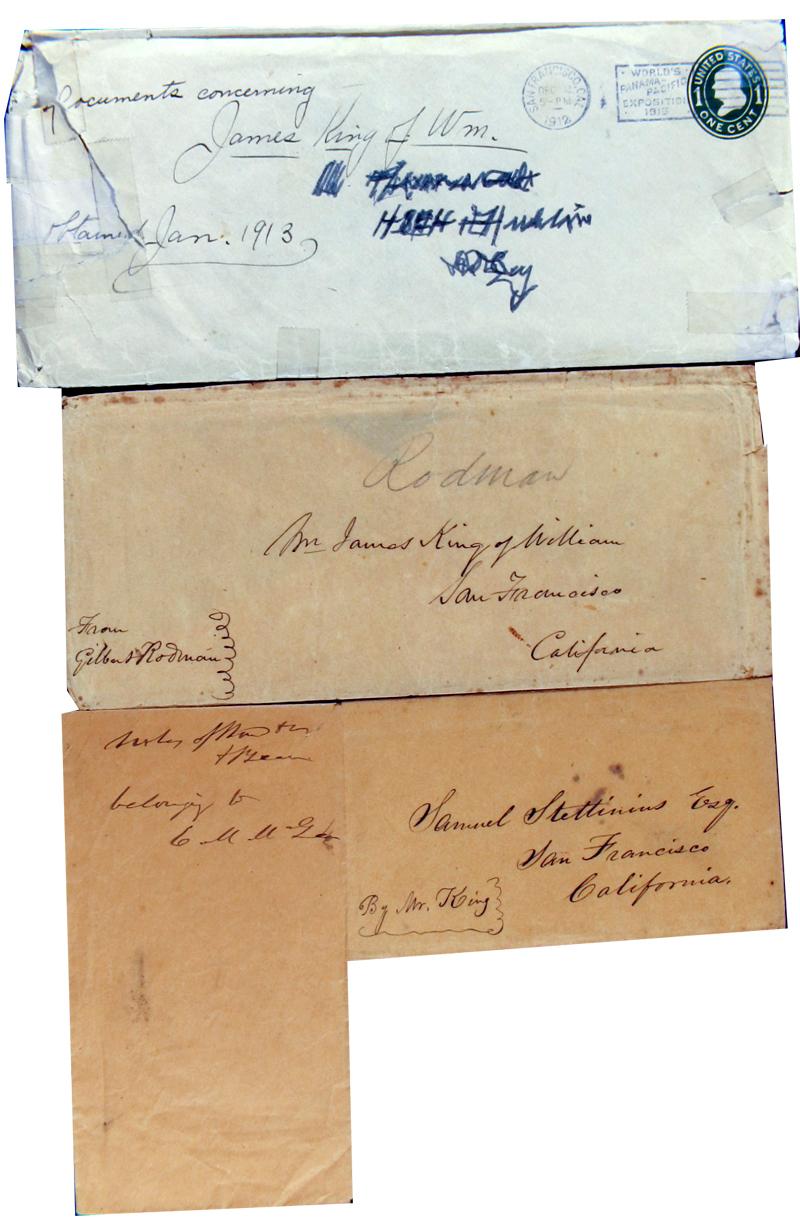 Documents concerning
James King of Wm.
Obtained Jan. 1913
SAN FRANCISCO, CAL.
DEC
5-PM
1912
WORLD'S
PANAMA-
PACIFIC
EXPOSITION
1915
UNITED STATES
1 1
ONE CENT
Rodman
Mr James King of William
San Francisco
California
From
Gilbert Rodman
Notes of
belonging to
Samuel Stettinius Esq.
San Francisco
California.
By Mr. King